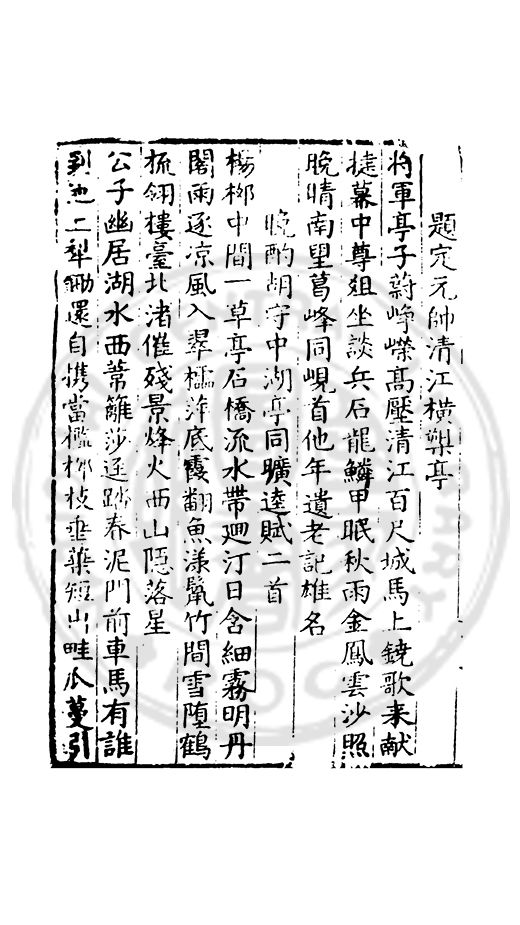 題定元帥清江横槊亭
將軍亭子蔚崢嶸髙壓清江百尺城馬上鐃歌来献
捷幕中尊俎坐談兵石龍鱗甲眠秋雨金鳳雲沙照
晚晴南望葛峰同峴首他年遺老記雄名
晚酌胡守中湖亭同曠逵賦二首
楊栁中間一草亭石橋流水帶廻汀日含細霧明丹
閣雨逐凉風入翠櫺萍底霞翻魚漾鬣竹間雪堕鶴
梳翎樓臺北渚催殘景烽火西山隠落星
公子幽居湖水西葦籬莎逕踏春泥門前車馬有誰
到池上犁鋤還自携當檻栁枝垂藥短出畦瓜蔓引